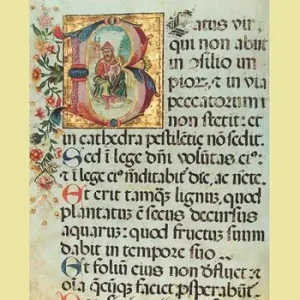 Beatus vir,
qui non abiit
in cōsilio im
pior; et in via
peccatorum
non stetit: et
in cathedra pestilētie nō sedit.
Sed ī lege dn̄i volūtas ei⁹:
et ī lege ei⁹ meditabit̄ die, ac nocte.
Et erit tamq̄ lignuȝ, quod
plantatuȝ ē secus decursus
aquarum: quod fructuȝ suum
dabit in tempore suo
Et foliuȝ eius non defluet:
et oīa q̄cūqȝ faciet ꝓsperabūt̄.